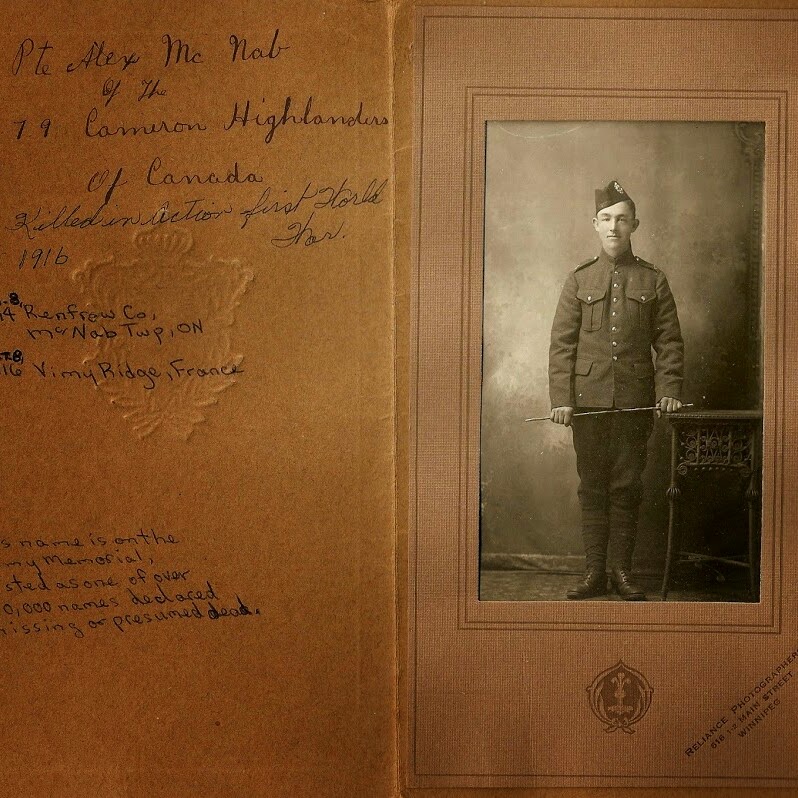 Pte Alex Mc Nab
Of The
79 Cameron Highlanders
Of Canada
Killed in Action first World
War.
1916
8,
Renfrow Co,
McNab Twp, ON
16 Vimy Ridge, France
s name is on the
my Memorial,
sted as one of over
0,000 names declared
missing or presumed dead.
RELIANCE PHOTOGRAPHER
616 1/2 MAIN STREET
WINNIPEG